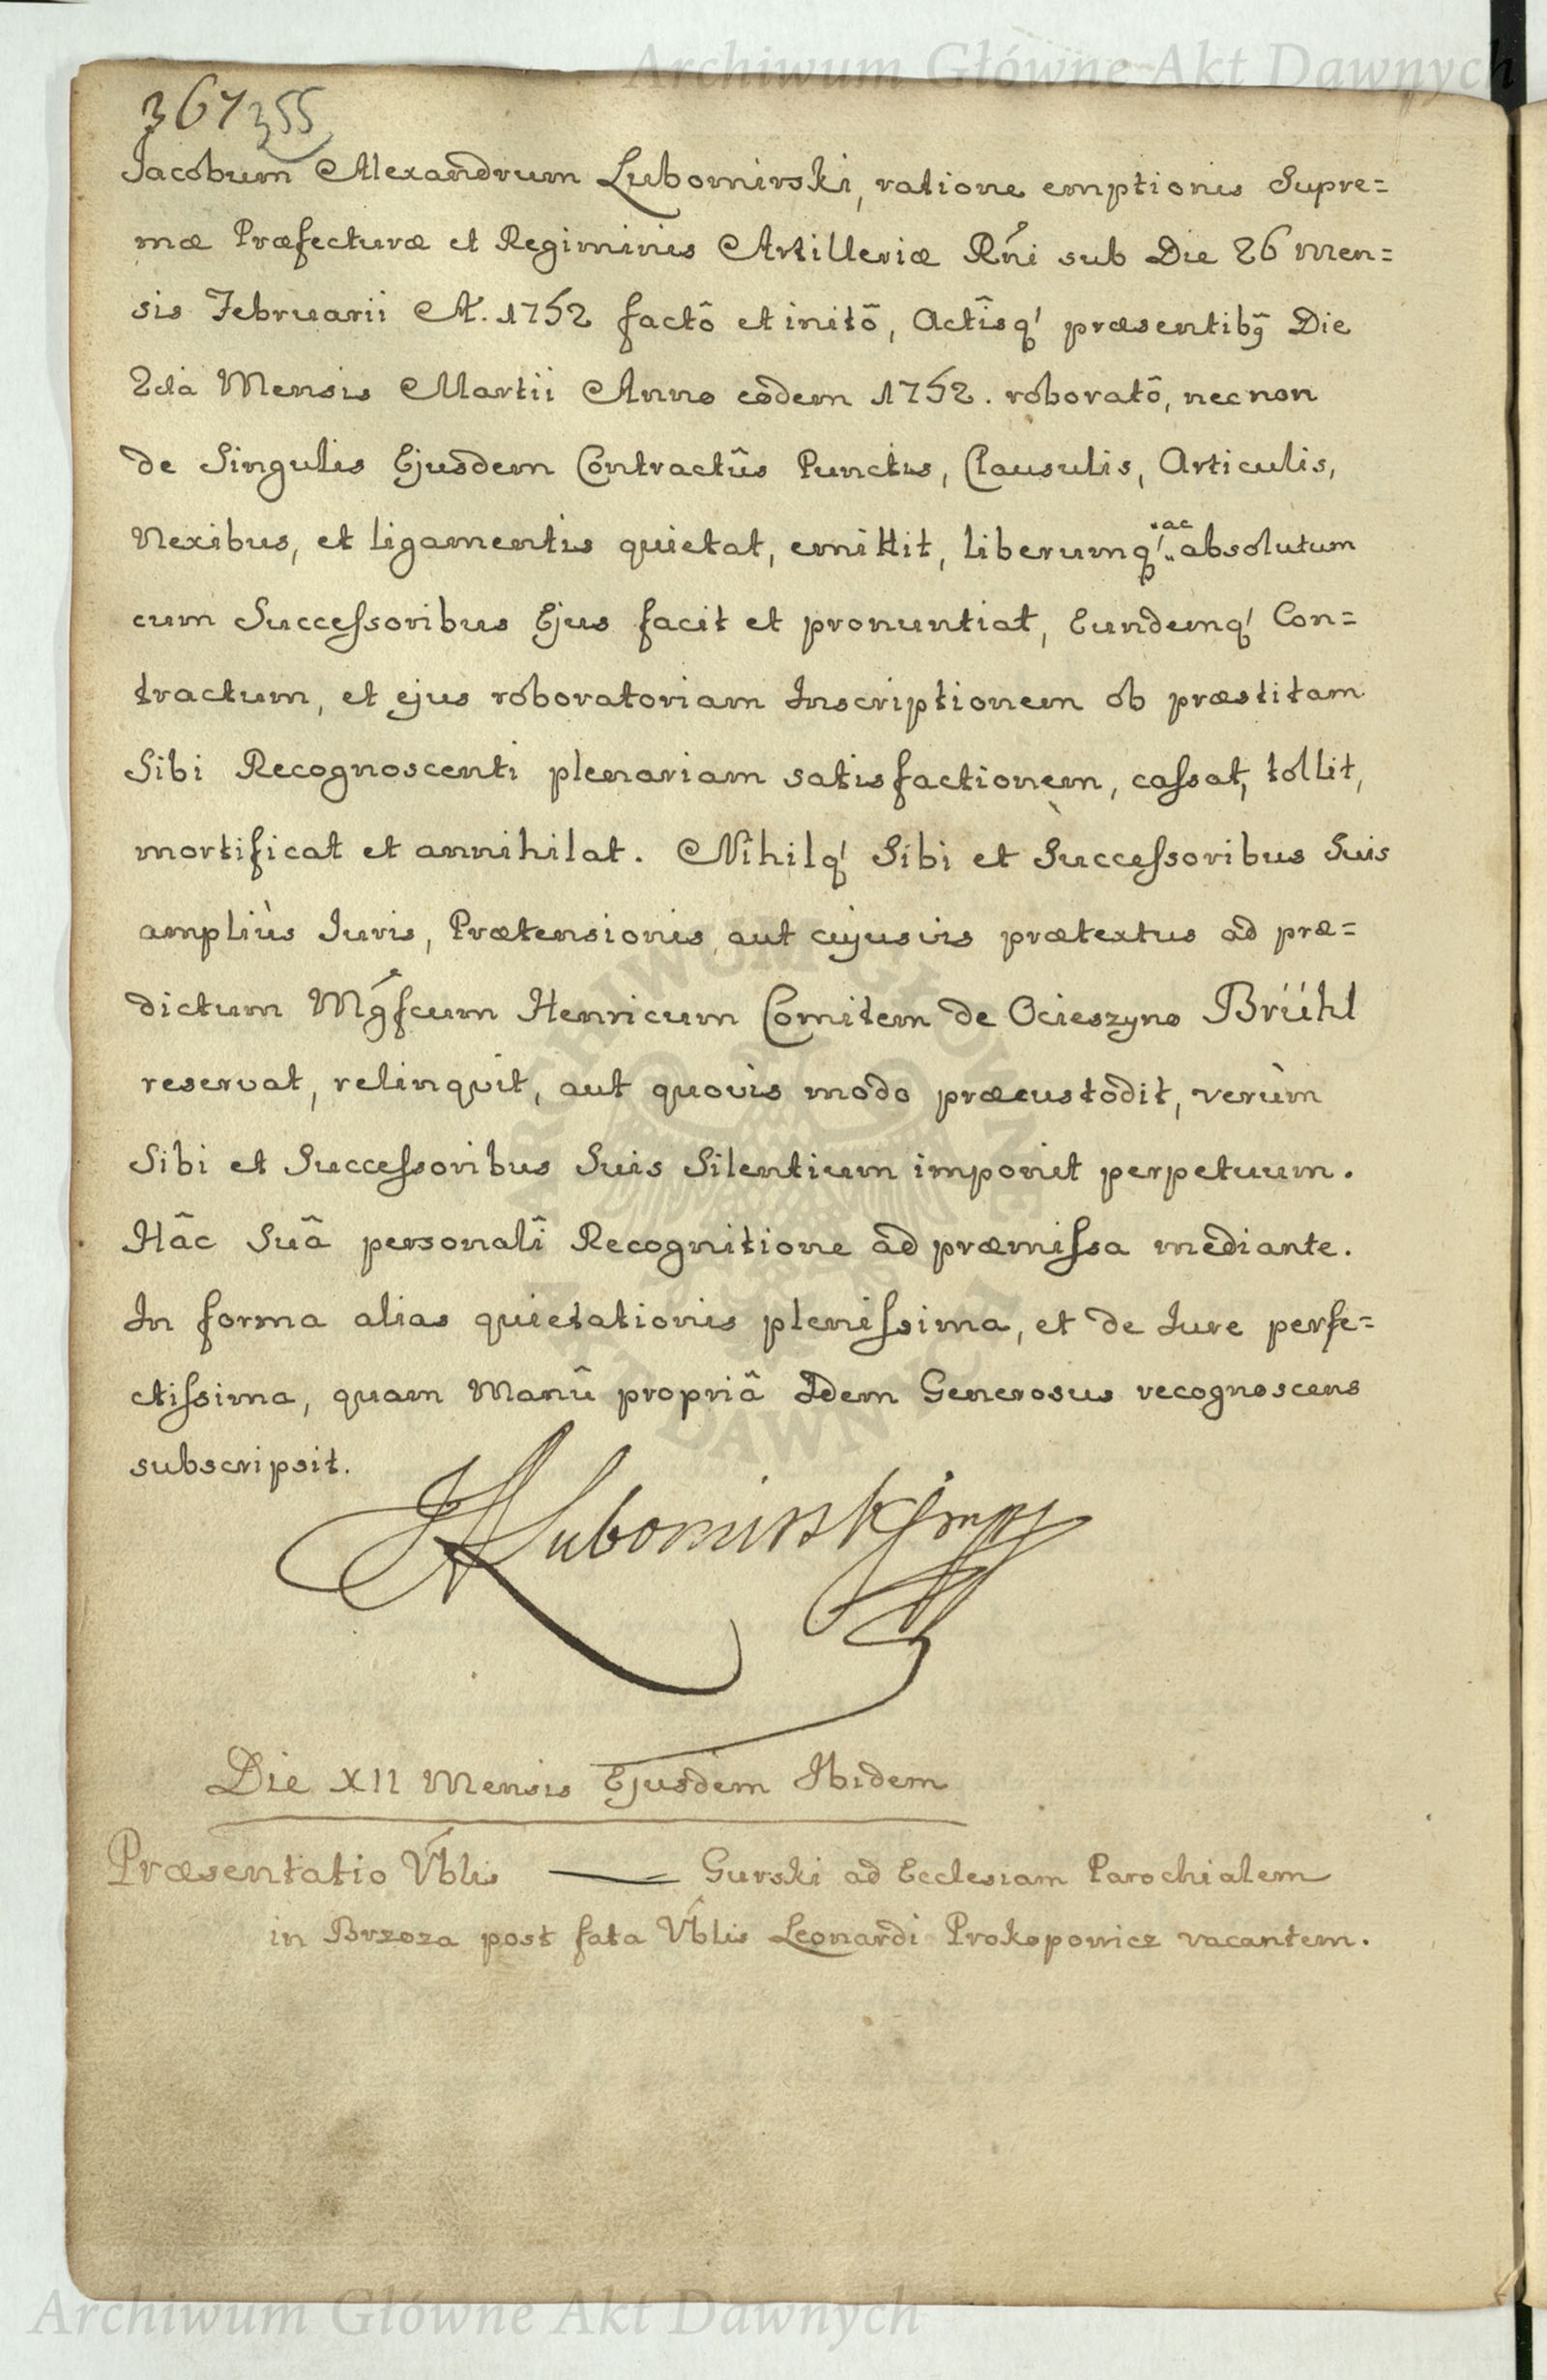 Archiwum Główne Akt Dawnych
367 355
Jacobum Alexandrum Lubomirski, ratione emptionis Supre=
mæ Præfecturæ et Regiminis Artilleriæ Rńi sub Die 26 Men=
sis Februarii A. 1752 factô et initô, Actîsq' præsentibꝫ Die
2da Mensis Martii Anno eodem 1752. roboratô, necnon
de Singulis Ejusdem Contractûs Punctis, Clausulis, Articulis,
Nexibus, et ligamentis quietat, emittit, liberumq' ac absolutum
cum Succeſsoribus Ejus facit et pronuntiat, Eundemq' Con=
tractum, et ejus roboratoriam Inscriptionem ob præstitam
Sibi Recognoscenti plenariam satisfactionem, caſsat, tollit,
mortificat et annihilat. Nihilq' Sibi et Succeſsoribus Suis
ampliùs Juris, Prætensionis aut cujusvis prætextus ad præ=
dictum Mǵfcum Henricum Comitem de Ocieszyno Brühl
reservat, relinquit, aut quovis modo præcustodit, verùm
Sibi et Succeſsoribus Suis Silentium imponit perpetuum.
Hâc Suâ personalî Recognitione ad præmiſsa mediante.
In forma alias quietationis pleniſsima, et de Jure perfe=
ctiſsima, quam Manû propriâ Idem Generosus recognoscens
subscripsit.
JALubomirski mpp
ARCHIWUM GŁÓWNE
AKT DAWNYCH
Die XII Mensis Ejusdem Ibidem
Præsentatio Vblis — Gurski ad Ecclesiam Parochialem
in Brzoza post fata Vblis Leonardi Prokopowicz vacantem.
Archiwum Główne Akt Dawnych